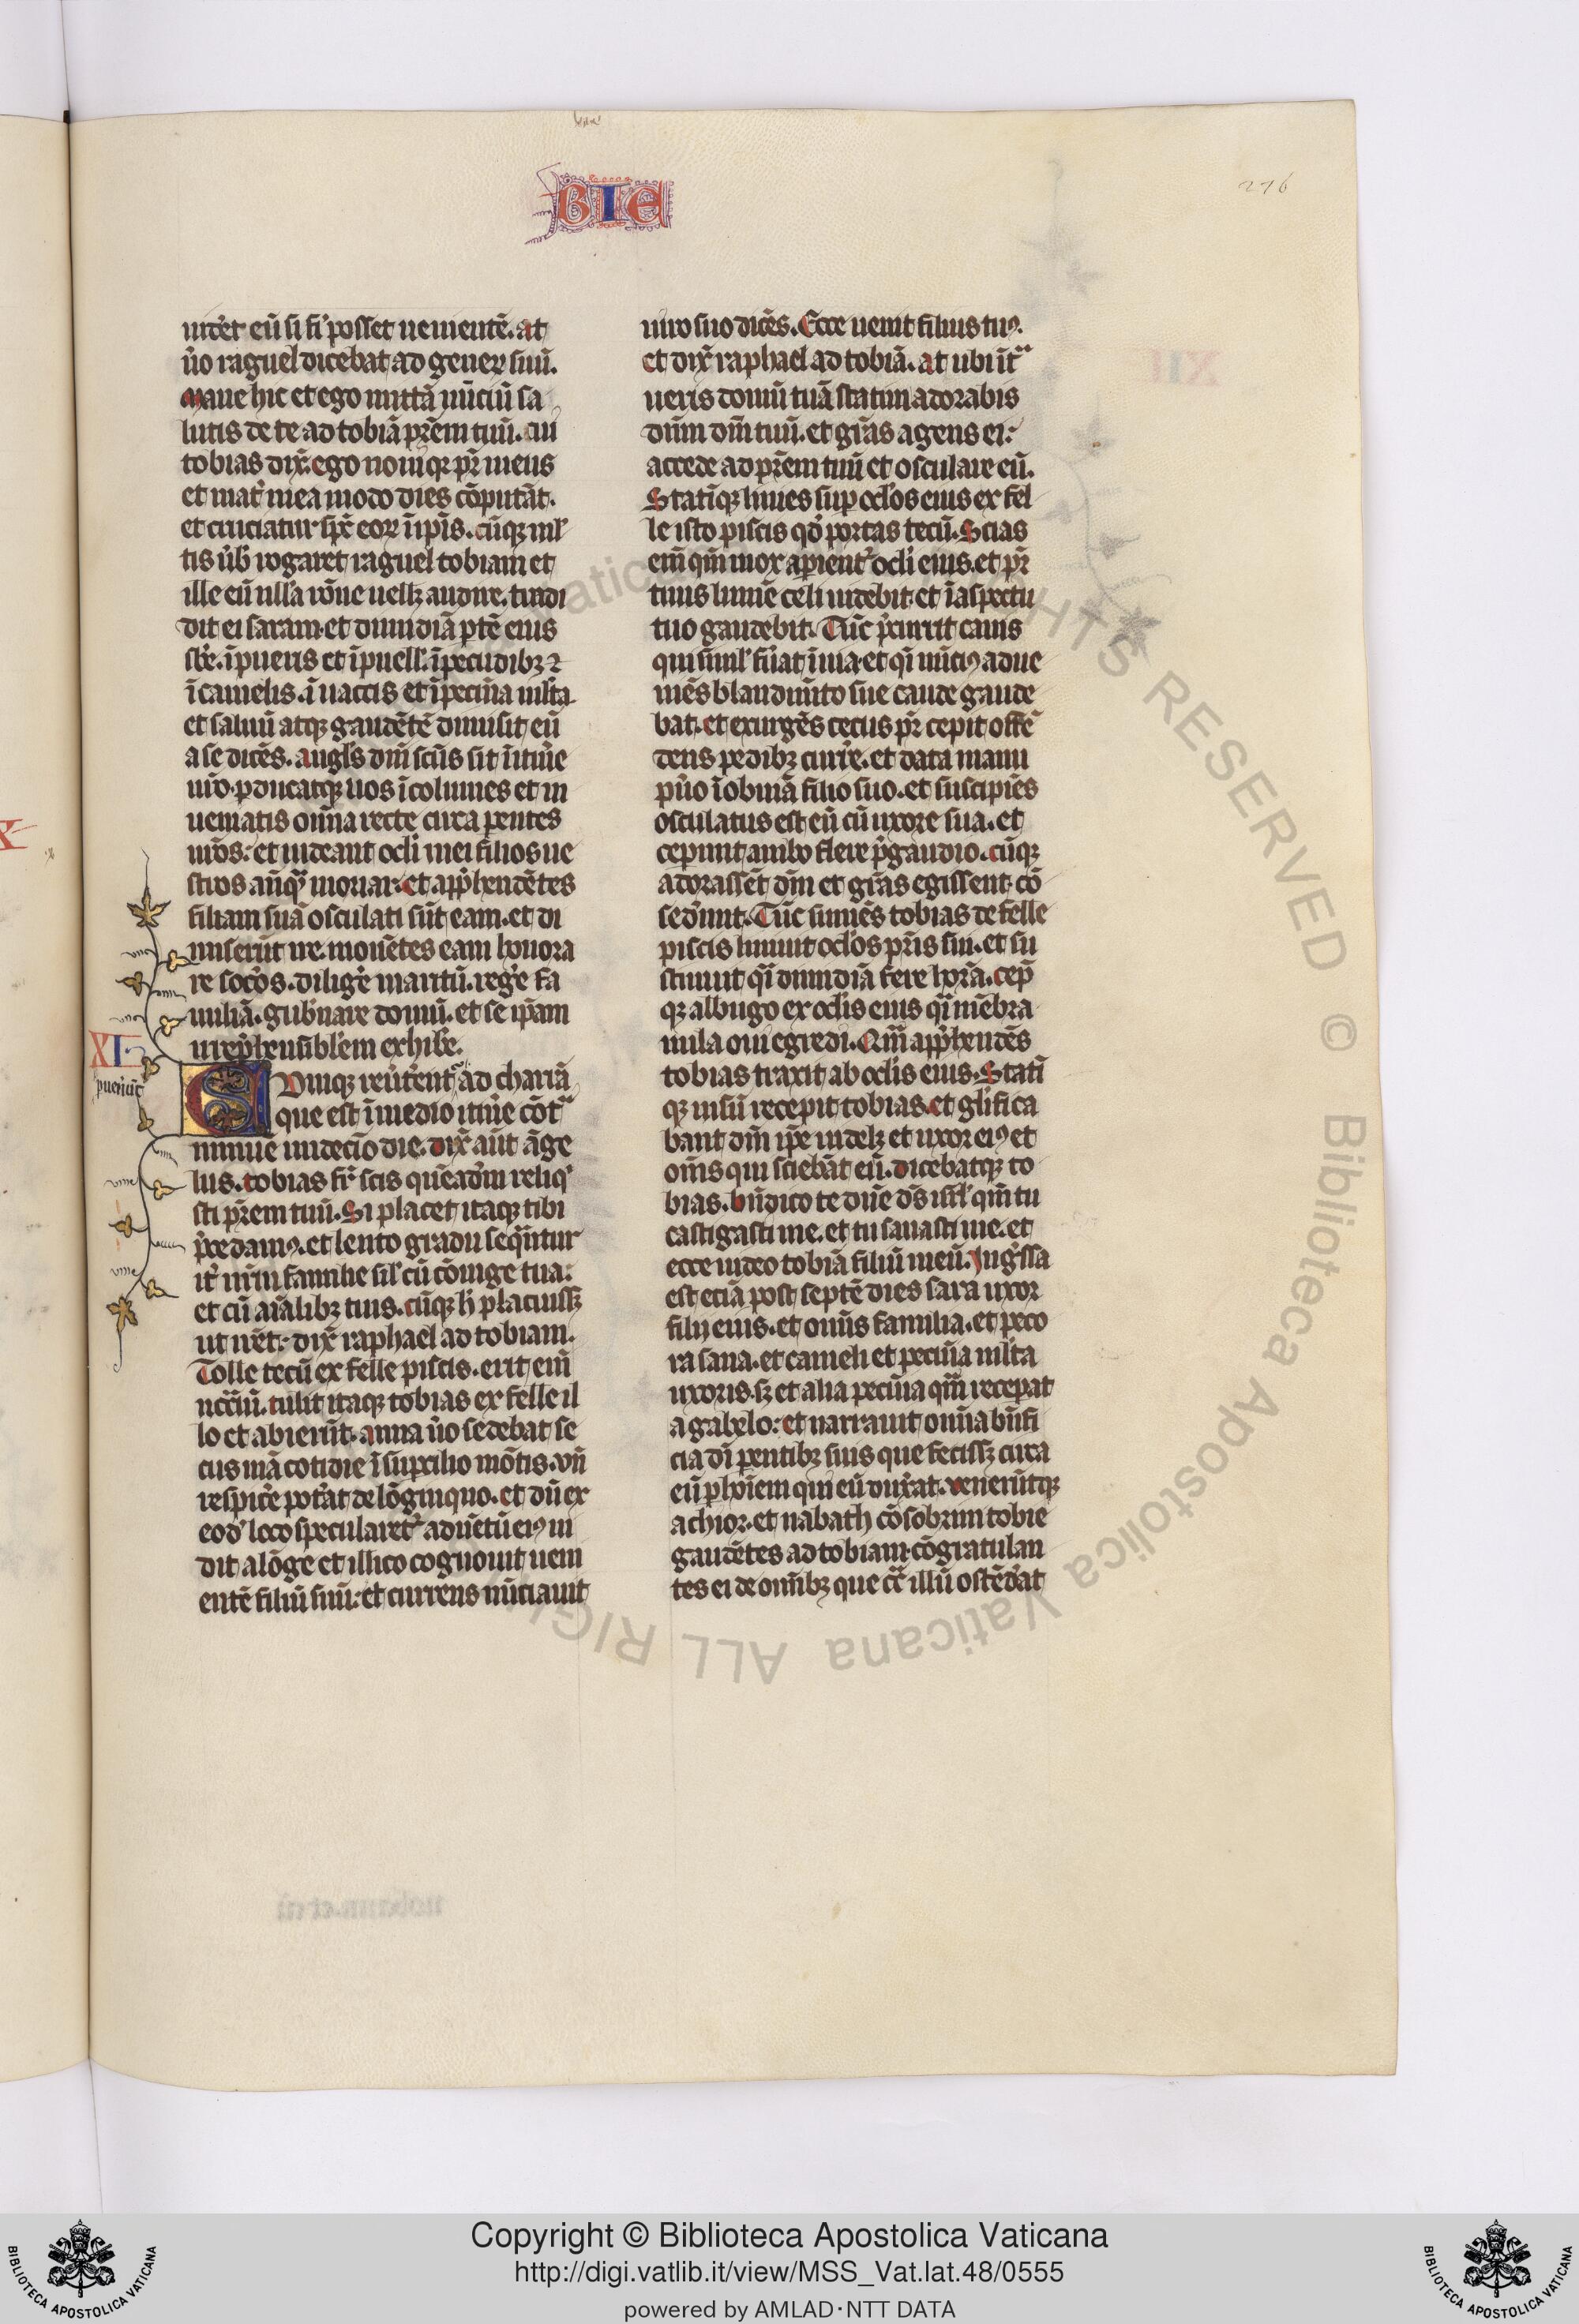 BIE
276
uidet eū si fi' posset uenientē. at
ũo raguel dicebat ad generꝝ suū.
mane hic et ego mittā nūciū sa
lutis de te ad tobiā pr̄em tuū. cui
tobias dix̄. ego noui qꝫ pr̄ meus
et mat̄ mea modo dies cōputāt.
et cruciatur sp̄c eoꝝ ī ip̄is. cūqꝫ ml'
tis ũb' rogaret raguel tobiam et
ille eū nll'a rōne uellꝫ audire. tradi
dit ei saram. et dimidiā ptē eius
sb'e. ī pueris et ī puell'. ī pecudibꝫ ⁊
ī camelis. ī uaccis et ī pecūia mlt̄a
et saluū atqꝫ gaudētē dimisit eū
a se dicēs. angl's dn̄i sc̄us sit ī itiñe
uro. pducatqꝫ uos īcolumes et in
ueniatis om̄ia recte circa pentes
uros: et uideant ocl'i mei filios ue
stros anq̄ moriar. et app̄hendētes
filiam suā osculati sūt eam. et di
miserūt ire. monētes eam honora
re soc̄os. dilige' maritū. rege' fa
miliā. gub'nare domū. et se ip̄am
irrep̄hensibl'em exhibe'.
XI
puenūt
Cumqꝫ reũtent̄ ad charrā
que est ī medio itiñe cōt̄
niniue undecīo die. dix̄ aūt āge
lus. tobias fr̄ scis quēadm̄ reliq'
sti pr̄em tuū. Si placet itaqꝫ tibi
p̄cedamꝰ. et lento gradu seq̄ntur
it̄ nr̄m familie sil' cū cōiuge tua:
et cū aīalibꝫ tuis. cūqꝫ h̄ placuissꝫ
ut irēt: dix̄ raphael ad tobiam.
Tolle tecū ex felle piscis. erit em̄
ncc̄iū. tulit itaqꝫ tobias ex felle il
lo et abierūt. anna ũo sedebat se
cus uiā cotidie ī supcilio mōtis. vn̄
respic̄e pot̄at de lōginquo. et dū ex
eod' loco specularet̄ aduētū eiꝰ ui
dit a lōge et illico cognouit ueni
entē filiū suū: et currens nūciauit
uiro suo dicēs. Ecce uenit filius tuꝰ.
et dix̄ raphael ad tobiā. at ubi īt̄
ueris domū tuā statim adorabis
dn̄m dm̄ tuū. et gr̄as agens ei:
accede ad pr̄em tuū et osculare eū.
Statīqꝫ linies sup ocl'os eius ex fel
le isto piscis qd' portas tecū. Scias
em̄ qm̄ mox apient̄ ocl'i eius. et pr̄
tuus lumē celi uidebit. et ī aspectu
tuo gaudebit. Tūc p̄currit canis
qui siml' fūat ī uia. et q̄i nūciꝰ adue
niēs blandimīto sue caude gaude
bat. et exurgēs cecus pr̄ cepit offē
dens pedibꝫ curre'. et data manu
pũo iobuiā filio suo. et suscipiēs
osculatus est eū cū uxore sua. et
ceperunt ambo flere p̄ gaudio. cūqꝫ
adorassēt dm̄ et gr̄as egissent. cō
sedūnt. Tūc sumēs tobias de felle
piscis liniuit ocl'os pr̄is sui. et su
stinuit q̄i dimidiā fere horā. cep̄
qꝫ albugo ex ocl'is eius q̄i mēbra
nula oui egredi. Qm̄ app̄hendēs
tobias traxit ab ocl'is eius. Statī
qꝫ uisū recepit tobias. et gl'ifica
bant dm̄ ip̄e uidelꝫ et uxor eiꝰ et
om̄s qui sciebāt eū. dicebatqꝫ to
bias. bn̄dico te dn̄e ds̄ isrl' qm̄ tu
castigasti me. et tu sanasti me. et
ecce uideo tobiā filiū meū. Ingr̄ssa
est eciā post septē dies sara uxor
filij eius. et om̄is familia. et peco
ra sana. et cameli et pecūia mlt̄a
uxoris. sꝫ et alia pecūia qm̄ recepat
a gabelo: et narrauit om̄ia bn̄fi
cia di' pentibꝫ suis que fecissꝫ circa
eū p hoīem qui eū dux̄at. venerūtqꝫ
achior. et nabath cōsobrini tobie
gaudētes ad tobiam. cōgratulan
tes ei de om̄ibꝫ que cc̄ illū ostēdat
© Biblioteca Apostolica Vaticana ALL RIGHTS RESERVED
Copyright © Biblioteca Apostolica Vaticana
http://digi.vatlib.it/view/MSS_Vat.lat.48/0555
powered by AMLAD·NTT DATA
BIBLIOTECA APOSTOLICA VATICANA
BIBLIOTECA APOSTOLICA VATICANA